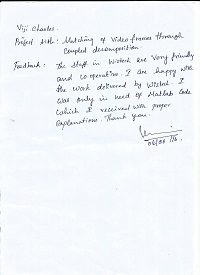 Viji Charles.
Project title: Matching of Video frames through
Coupled decomposition.
Feedback: The staff in Wiztech are very friendly
and co operative. I am happy with
the work delivered by Wiztech. I
was only in need of Matlab Code
which I received with proper
explanations. Thank you.